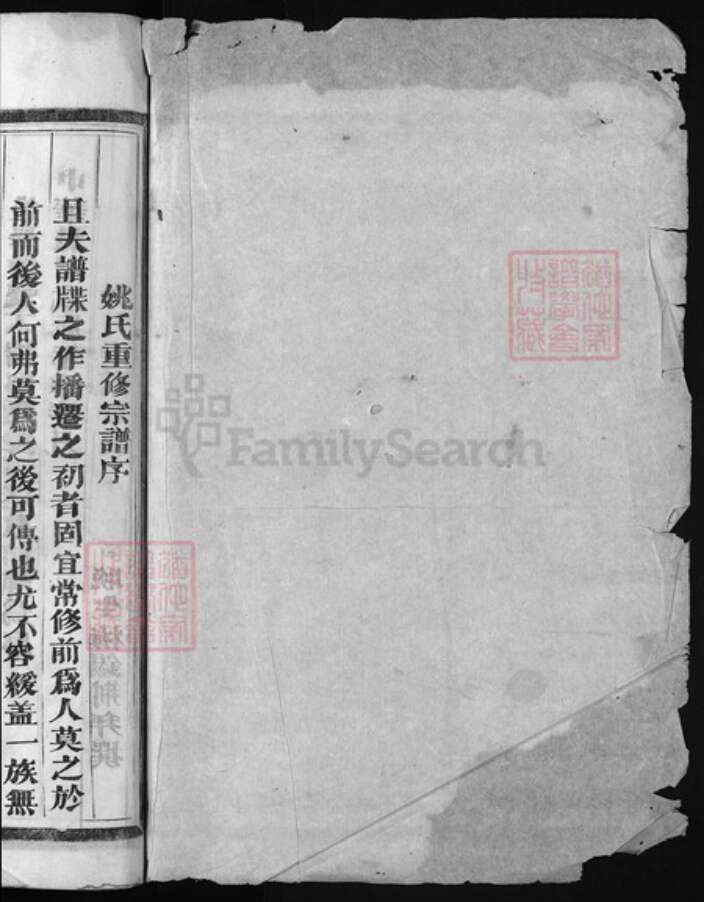 姚氏重修宗譜序
且夫譜牒之作播遷之初者固宜常修前爲人莫之於
前而後人何弗莫爲之後可傳也尤不容緩盖一族無
FamilySearch